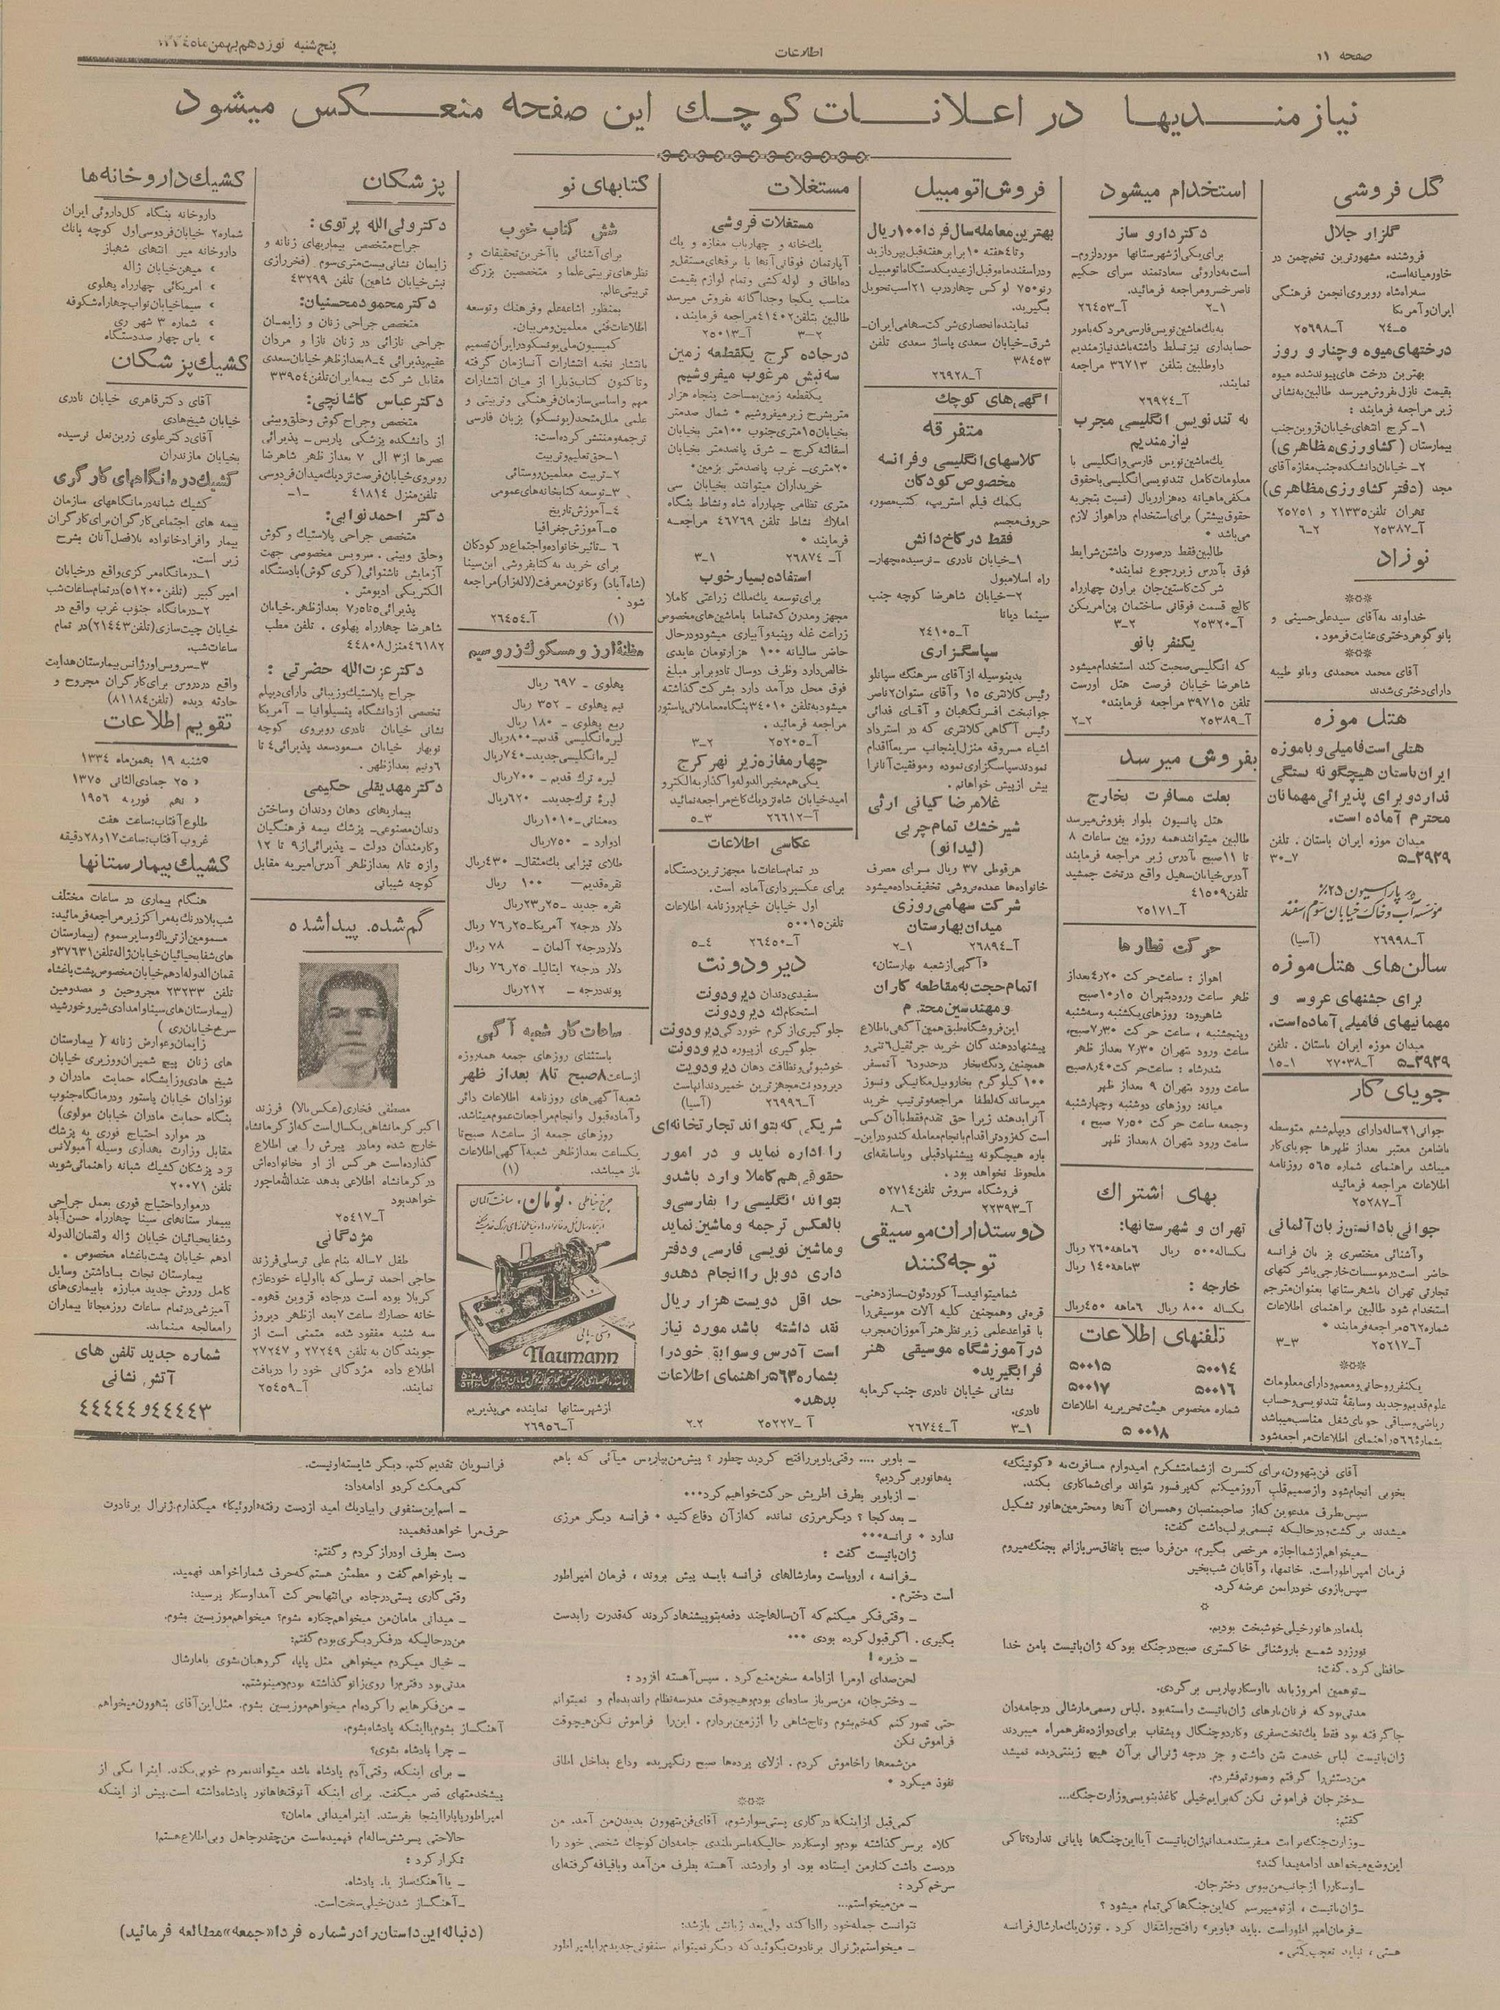 صفحه ۱۱
اطلاعات
پنج‌شنبه نوزدهم بهمن‌ماه ۱۳۳۴
نیازمندیها در اعلانات کوچک این صفحه منعکس میشود
گل فروشی
گلزار جلال
فروشنده مشهورترین تخم‌چمن در
خاورمیانه‌است.
سه‌راه‌شاه روبروی‌انجمن فرهنگی
ایران‌وآمریکا
۵ــ۲٤ آــ۲۵۶۹۸
درختهای‌میوه و چنار و روز
بهترین درخت های‌پیوندشده میوه
بقیمت نازل‌فروش‌میرسد طالبین‌به‌نشانی
زیر مراجعه فرمایند :
۱ــ کرج انتهای‌خیابان‌قزوین‌جنب
بیمارستان (کشاورزی‌مظاهری)
۲ــ خیابان‌دانشکده‌جنب‌مغازه‌آقای
مجد (دفتر کشاورزی‌مظاهری)
تهران تلفن‌۲۱۳۳۵ و ۲۵۷۵۱
آــ۲۵۳۸۷ ۲ــ۶
نوزاد
خداوند به‌آقای سیدعلی‌حسینی و
بانوگوهردختری‌عنایت‌فرمود.
آقای محمد محمدی وبانو طیبه
دارای‌دختری‌شدند
هتل موزه
هتلی‌است‌فامیلی‌وباموزه
ایران‌باستان هیچگونه بستگی
نداردوبرای پذیرائی‌مهمانان
محترم آماده‌است.
میدان موزه ایران باستان . تلفن
۵ــ۲۹۲۹ ۷ــ۳۰
آــ۲۶۹۹۸ (آسیا)
سالن‌های هتل‌موزه
برای جشنهای عروسی و
مهمانیهای فامیلی‌آماده‌است.
میدان موزه ایران باستان . تلفن
۵ــ۲۹۲۹ آــ۲۷۰۳۸ ۱ــ۱۵
جویای کار
جوانی‌۲۱ساله‌دارای دیپلم‌ششم متوسطه
باضامن معتبر بعداز ظهرها جویای‌کار
میباشد براهنمای شماره ۵۶۵ روزنامه
اطلاعات مراجعه فرمائید
آــ۲۵۲۸۷
جوانی بادانستن زبان‌آلمانی
وآشنائی مختصری بزبان فرانسه
حاضر است‌درموسسات‌خارجی‌یاشرکتهای
تجارتی تهران یاشهرستانها بعنوان‌مترجم
استخدام شود طالبین براهنمای اطلاعات
شماره‌۵۶۲مراجعه‌فرمایند
آــ۲۵۲۱۷ ۳ــ۳
یکنفرروحانی‌ومعمم‌ودارای‌معلومات
علوم‌قدیم‌وجدید وسابقهٔ تندنویسی‌وحساب
ریاضی‌وسیاقی جویای‌شغل مناسب‌میباشد
بشماره‌۵۶۶راهنمای اطلاعات‌مراجعه‌شود
استخدام میشود
دکترداروساز
برای‌یکی‌ازشهرستانها موردلزوم‌ــ
است‌به‌داروئی سعادتمند سرای حکیم
ناصرخسرومراجعه فرمائید.
۱ــ۲ آــ۲۶٤۵۳
به‌یک‌ماشین‌نویس‌فارسی‌مردکه‌بامور
حسابداری نیزتسلط داشته‌باشدنیازمندیم
داوطلبین بتلفن ۳۶۷۱۳ مراجعه
نمایند.
آــ۲۶۹۲٤
به تندنویس انگلیسی مجرب
نیازمندیم
یک‌ماشین‌نویس فارسی‌وانگلیسی با
معلومات‌کامل تندنویسی‌انگلیسی‌باحقوق
مکفی‌ماهیانه ده‌هزارریال (نسبت بتجربه
حقوق‌بیشتر) برای‌استخدام دراهواز لازم
می‌باشد
طالبین‌فقط درصورت داشتن‌شرایط
فوق بآدرس زیررجوع نمایند
شرکت‌کاستین‌جان براون چهارراه
کالج قسمت فوقانی ساختمان پن‌امریکن
آــ۲۵۳۲۰ ۲ــ۳
یکنفر بانو
که انگلیسی‌صحبت‌کند استخدام‌میشود
شاهرضا خیابان فرصت هتل اورست
تلفن ۳۹۷۱۵ مراجعه فرمایند
آــ۲۵۳۸۹ ۲ــ۲
بفروش میرسد
بعلت مسافرت بخارج
هتل پانسیون بلوار بفروش‌میرسد
طالبین میتوانندهمه روزه بین ساعات ۸
تا ۱۱صبح بآدرس زیر مراجعه فرمایند
آدرس‌خیابان‌سهیل واقع درتخت جمشید
تلفن‌٤۱۵۰۹
آــ۲۵۱۷۱
حرکت قطارها
اهواز : ساعت‌حرکت ۲۰ر٤بعداز
ظهر ساعت ورودبتهران ۱۵ر۱۰صبح
شاهرود: روزهای‌یکشنبه وسه‌شنبه
وپنجشنبه ، ساعت حرکت ۳۰ر۷صبح،
ساعت ورود تهران ۳۰ر۷ بعداز ظهر
بندرشاه : ساعت‌حرکت ٤۰ر۸صبح
ساعت ورود تهران ۹ بعداز ظهر
میانه: روزهای دوشنبه وچهارشنبه
وجمعه ساعت حرکت ۵۰ر۷ صبح ،
ساعت ورود تهران ۸بعداز ظهر
بهای اشتراک
تهران و شهرستانها:
یکساله‌۵۰۰ ریال ۶ماهه‌۲۶۰ ریال
۳ماهه‌۱٤۰ ریال
خارجه :
یکساله ۸۰۰ ریال ۶ماهه ٤۵۰ریال
تلفنهای اطلاعات
۵۰۰۱٤ ۵۰۰۱۵
۵۰۰۱۶ ۵۰۰۱۷
شماره مخصوص هیئت‌تحریریه اطلاعات
۵۰۰۱۸
فروش‌اتومبیل
بهترین‌معامله‌سال‌فردا۱۰۰ریال
وتا٤هفته ۱۰برابرهفته‌قبل‌بپردازید
ودراسفندماه‌وقبل‌ازعیدیکدستگاه‌اتومبیل
رنو۷۵۰ لوکس چهاردرب ۲۱اسب‌تحویل
بگیرید.
نماینده‌انحصاری‌شرکت‌سهامی‌ایران‌ــ
شرق‌ــخیابان سعدی پاساژ سعدی تلفن
۳۸٤۵۳
آــ۲۶۹۲۸
آگهی‌های کوچک
متفرقه
کلاسهای‌انگلیسی‌وفرانسه
مخصوص‌کودکان
بکمک فیلم استریپ، کتب‌مصور،
حروف‌مجسم
فقط درکاخ‌دانش
۱ــخیابان نادری ــ نرسیده‌بچهارــ
راه اسلامبول
۲ــخیابان شاهرضا کوچه جنب
سینما دیانا
آــ۲٤۱۰۵
سپاسگزاری
بدینوسیله‌ازآقای سرهنگ سپانلو
رئیس کلانتری ۱۵ وآقای ستوان۲ناصر
جوانبخت افسرنگهبان و آقای فدائی
رئیس آگاهی‌کلانتری که در استرداد
اشیاء مسروقه منزل‌اینجانب سریعاً‌اقدام
نمودند‌سپاسگزاری‌نموده وموفقیت‌آنانرا
بیش ازپیش خواهانم.
غلامرضا کیانی ارثی
شیرخشک تمام‌چربی
(لیدانو)
هرقوطی ۳۷ ریال سرای مصرف
خانواده‌ها عمده‌فروشی تخفیف‌داده‌میشود
شرکت سهامی‌روزی
میدان‌بهارستان
آــ۲۶۸۹٤ ۱ــ۲
«آگهی‌ازشعبه بهارستان»
اتمام‌حجت‌به‌مقاطعه کاران
ومهندسین‌محترم
این‌فروشگاه‌طبق‌همین‌آگهی‌باطلاع
پیشنهاددهندگان خرید جرثقیل‌۶تنی‌و
همچنین دیگ‌بخار درحدود۶ آتمسفر
۱۰۰کیلوگرم بخارومیل‌مکانیکی ونسوز
میرساندکه‌لطفا مراجعه‌وترتیب خرید
آنرابدهند زیرا حق تقدم‌فقط‌باآن‌کسی
است‌که‌زودتراقدام‌بانجام‌معامله کندودراین‌ــ
باره هیچگونه پیشنهادقبلی وباسابقه‌ای
ملحوظ نخواهد بود .
فروشگاه سروش تلفن‌۵۲۷۱٤
آــ۲۲۳۹۳ ۶ــ۸
دوستداران‌موسیقی
توجه‌کنند
شمامیتوانیدــ‌آکوردئون‌ــ‌سازدهنی‌ــ
قره‌نی وهمچنین کلیه آلات موسیقی‌را
با قواعدعلمی زیرنظرهنرآموزان‌مجرب
درآموزشگاه موسیقی هنر
فراگیرید
نشانی خیابان نادری جنب‌کرمایه
نادری.
۱ــ۳ آــ۲۶۷٤٤
مستغلات
مستغلات فروشی
یک‌خانه و چهارباب مغازه و یک
آپارتمان فوقانی‌آنها با برقهای‌مستقل‌و
ده‌اطاق و لوله‌کشی وتمام لوازم بقیمت
مناسب یکجا وجداگانه بفروش میرسد
طالبین بتلفن‌٤۱٤۰۲مراجعه فرمایند.
۲ــ۳ آــ۲۵۰۱۳
درجاده کرج یکقطعه زمین
سه‌نبش مرغوب میفروشیم
یکقطعه زمین‌بمساحت پنجاه هزار
متربشرح زیرمیفروشیم شمال صدمتر
بخیابان‌۱۵متری‌جنوب ۱۰۰متر بخیابان
اسفالته‌کرج ــ شرق پانصدمتر بخیابان
۲۰متری‌ــ غرب پانصدمتر بزمین
خریداران میتوانند بخیابان سی
متری نظامی چهارراه شاه ونشاط بنگاه
املاک نشاط تلفن ٤۶۷۶۹ مراجعه
فرمایند
آــ ۲۶۸۷٤ ۱ــ۳
استفاده بسیارخوب
برای‌توسعه یک‌ملک زراعتی کاملا
مجهزومدرن که‌تماما باماشین‌های‌مخصوص
زراعت غله وپنبه‌وآبیاری میشودودرحال
حاضر سالیانه ۱۰۰ هزارتومان عایدی
خالص‌دارد وظرف دوسال تادوبرابر مبلغ
فوق محل درآمد دارد بشرکت‌گذاشته
میشودبه‌تلفن ۳٤۰۱۰بنگاه‌معاملاتی‌پاستور
مراجعه فرمائید .
آــ۲۵۲۰۵ ۲ــ۳
چهارمغازه‌زیر نهرکرج
یکی‌هم‌مخبرالدوله‌واگذاریه‌الکترو
امیدخیابان شاه‌نزدیک‌کاخ‌مراجعه‌نمائید
آــ۲۶۶۱۲ ۳ــ۵
عکاسی اطلاعات
در تمام‌ساعات‌با مجهزترین‌دستگاه
برای عکسبرداری‌آماده است.
اول خیابان خیام‌روزنامه اطلاعات
تلفن‌۵۰۰۱۵
آــ۲۶٤۵۰ ٤ــ۵
دیرودونت
سفیدی‌دندان دیرودونت
استحکام‌لثه دیرودونت
جلوگیری‌ازکرم خوردگی‌دیرودونت
جلوگیری ازپیوره دیرودونت
خوشبوئی‌ونظافت دهان دیرودونت
دیرودونت‌مجهزترین خمیردندانهاست
آــ۲۶۹۹۶ (آسیا)
شریکی که بتواند تجارتخانه‌ای
را اداره نماید و در امور
حقوقی هم‌کاملا وارد باشدو
بتواند انگلیسی را بفارسی‌و
بالعکس ترجمه وماشین نماید
وماشین نویسی فارسی ودفتر
داری دوبل راانجام دهدو
حد اقل دویست هزار ریال
نقد داشته باشد مورد نیاز
است آدرس وسوابق خودرا
بشماره‌۵۶۳راهنمای اطلاعات
بدهد
آ ــ۲۵۲۲۷ ۲ــ۲
کتابهای نو
شش کتاب خوب
برای‌آشنائی باآخرین‌تحقیقات و
نظرهای‌تربیتی‌علما و متخصصین بزرگ
تربیتی‌عالم.
بمنظور اشاعه‌علم وفرهنگ وتوسعه
اطلاعات‌فنی معلمین‌ومربیان.
کمیسیون‌ملی‌یونسکودرایران‌تصمیم
بانتشار نخبه انتشارات آنسازمان گرفته
وتاکنون کتاب‌ذیلرا از میان انتشارات
مهم واساسی‌سازمان‌فرهنگی وتربیتی و
علمی ملل‌متحد(یونسکو) بزبان فارسی
ترجمه‌ومنتشرکرده‌است:
۱ــحق‌تعلیم‌وتربیت
۲ــتربیت معلمین‌روستائی
۳ــتوسعه کتابخانه‌های‌عمومی
٤ــآموزش‌تاریخ
۵ــآموزش‌جغرافیا
۶ ــتاثیرخانواده‌واجتماع‌درکودکان
برای خرید به کتابفروشی ابن‌سینا
(شاه‌آباد) وکانون‌معرفت(لاله‌زار)مراجعه
شود
(۱) آــ۲۶٤۵٤
مظنهٔ ارز و مسکوک زروسیم
پهلوی ــ ۶۹۷ ریال
نیم پهلوی ــ ۳۵۲ ریال
ربع پهلوی ــ ۱۸۰ ریال
لیره‌انگلیسی قدیم‌ــ۸۰۰ریال
لیره‌انگلیسی‌جدیدــ۷٤۰ریال
لیره ترک قدیم ــ۷۰۰ ریال
لیرهٔ ترک‌جدیدــ ۶۲۰ریال
ده‌مناتی‌ــ۱۰۱۰ریال
ادوارد ــ ۷۵۰ریال
طلای تیزابی یک‌مثقال‌ــ ٤۳۰ریال
نقره‌قدیم‌ــ ۱۰۰ ریال
نقره جدید ــ۲۵ر۲۳ریال
دلار درجه۲ آمریکاــ۲۵ر۷۶ ریال
دلاردرجه۲ آلمان ــ ۷۸ ریال
دلار درجه۲ ایتالیاــ ۲۵ر۷۶ ریال
پونددرجه ــ ۲۱۲ریال
ساعات کار شعبه آگهی
باستثنای روزهای جمعه همه‌روزه
ازساعت۸صبح تا۸ بعداز ظهر
شعبه‌آگهی‌های روزنامه اطلاعات دائر
وآماده‌قبول وانجام‌مراجعات‌عموم‌میباشد.
روزهای جمعه از ساعت۸ صبح‌تا
یکساعت بعدازظهر شعبه‌آگهی‌اطلاعات
باز میباشد. (۱)
چرخ خیاطی نومان ساخت آلمان
دستی ــ پائی
Naumann
ازشهرستانها نماینده می‌پذیریم
آــ۲۶۹۵۶
پزشکان
دکترولی‌الله پرتوی:
جراح‌متخصص بیماریهای زنانه و
زایمان نشانی بیست‌متری‌سوم (فخررازی
نبش‌خیابان شاهین) تلفن ٤۳۲۹۹
دکترمحمودمحسنیان:
متخصص جراحی زنان و زایمان
جراحی نازائی در زنان نازا و مردان
عقیم‌پذیرائی٤ــ۸بعدازظهرخیابان‌سعدی
مقابل شرکت بیمه‌ایران‌تلفن‌۳۳۹۵٤
دکترعباس کاشانچی:
متخصص وجراح گوش وحلق‌وبینی
از دانشکده پزشکی پاریس‌ــ پذیرائی
عصرها از۳ الی ۷ بعداز ظهر شاهرضا
روبروی‌خیابان‌فرصت نزدیک‌میدان‌فردوسی
تلفن‌منزل ٤۱۸۱٤ ــ۱ــ
دکتر احمدنوابی:
متخصص جراحی پلاستیک وگوش
وحلق وبینی. سرویس مخصوصی جهت
آزمایش ناشنوائی(کری‌گوش)بادستگاه
الکتریکی ادیومتر.
پذیرائی‌۵تا۷ر بعدازظهر.خیابان
شاهرضا چهارراه پهلوی . تلفن مطب
٤۶۱۸۲منزل‌٤٤۸۰۸
دکترعزت‌الله حضرتی :
جراح پلاستیک‌وزیبائی دارای‌دیپلم
تخصصی ازدانشگاه پنسیلوانیا ــ آمریکا
نشانی خیابان نادری روبروی کوچه
نوبهار خیابان مسعودسعد پذیرائی٤ تا
۶ونیم بعدازظهر.
دکترمهدیقلی حکیمی
بیماریهای دهان ودندان وساختن
دندان‌مصنوعی‌ــ پزشک بیمه فرهنگیان
وکارمندان دولت ــ پذیرائی‌از۹ تا ۱۲
واز۵ تا۸ بعدازظهر آدرس‌امیریه مقابل
کوچه شیبانی
گم‌شده. پیداشده
مصطفی فخاری(عکس‌بالا) فرزند
اکبرکرمانشاهی‌یکسال‌است‌که‌ازکرمانشاه
خارج شده ومادر پیرش را بی اطلاع
گذارده‌است هرکس از او بخانواده‌اش
درکرمانشاه اطلاعی بدهد عندالله‌ماجور
خواهدبود
آــ۲۵٤۱۷
مژدگانی
طفل ۷ساله بنام علی ترسلی‌فرزند
حاجی احمد ترسلی که بااولیاء خودعازم
کربلا بوده است درجاده قزوین قهوه‌ــ
خانه حصارک ساعت ۷بعد ازظهر دیروز
سه شنبه مفقود شده متمنی است از
جویندگان به تلفن ۲۷۲٤۹ و ۲۷۲٤۷
اطلاع داده مژدگانی خود را دریافت
نمایند. آــ۲۵٤۵۹
کشیک‌داروخانه‌ها
داروخانه بنگاه کل‌داروئی ایران
شماره۲ خیابان‌فردوسی‌اول کوچه بانک
داروخانه میر انتهای شهباز
» میهن‌خیابان ژاله
» امریکائی چهارراه پهلوی
» سیماخیابان‌نواب‌چهارراه‌شکوفه
» شماره ۳ شهر ری
» یاس چهار صددستگاه
کشیک‌پزشکان
آقای دکترقاهری خیابان نادری
خیابان شیخ‌هادی
آقای‌دکترعلوی زرین‌نعل نرسیده
بخیابان مازندران
کشیک‌درمانگاههای کارگری
کشیک شبانه درمانگاههای سازمان
بیمه های اجتماعی‌کارگران‌برای‌کارگران
بیمار وافرادخانواده بلافصل‌آنان بشرح
زیر است.
۱ــدرمانگاه‌مرکزی‌واقع درخیابان
امیرکبیر (تلفن‌۵۱۲۰۰)درتمام‌ساعات‌شب
۲ــدرمانگاه جنوب غرب واقع در
خیابان چیت‌سازی(تلفن‌۲۱٤٤۳)در تمام
ساعات‌شب.
۳ــسرویس‌اورژانس‌بیمارستان‌هدایت
واقع دردروس برای‌کارگران مجروح و
حادثه دیده (تلفن‌۸۱۱۸٤)
تقویم اطلاعات
۵شنبه ۱۹ بهمن‌ماه ۱۳۳٤
» ۲۵ جمادی‌الثانی ۱۳۷۵
» نهم فوریه ۱۹۵۶
طلوع‌آفتاب:ساعت هفت
غروب آفتاب:ساعت‌۱۷و۲۸دقیقه
کشیک‌بیمارستانها
هنگام بیماری در ساعات مختلف
شب‌بلادرنگ‌به‌مراکززیرمراجعه‌فرمائید:
مسمومین‌ازتریاک‌وسایرسموم (بیمارستان
های‌شفایحیائیان خیابان‌ژاله‌تلفن‌۳۷۶۳۱و
لقمان‌الدوله‌ادهم‌خیابان‌مخصوص‌پشت‌باغشاه
تلفن ۲۳۲۳۳ مجروحین و مصدومین
(بیمارستان‌های‌سیناوامدادی‌شیروخورشید
سرخ‌خیابان‌ری )
زایمان‌وعوارض زنانه ( بیمارستان
های زنان پیچ شمیران‌ووزیری خیابان
شیخ هادی‌وزایشگاه حمایت مادران و
نوزادان خیابان پاستور ودرمانگاه‌جنوب
بنگاه حمایت مادران خیابان مولوی)
در موارد احتیاج فوری به پزشک
مقابل وزارت بهداری وسیله آمبولانس
نزد پزشکان کشیک شبانه راهنمائی‌شوید
تلفن ۲۰۰۷۱
درموارداحتیاج فوری بعمل جراحی
ببیمارستانهای سینا چهارراه حسن‌آباد
وشفایحیائیان خیابان ژاله ولقمان‌الدوله
ادهم خیابان پشت‌باغشاه مخصوص .
بیمارستان نجات باداشتن وسایل
کامل وروش جدید مبارزه بابیماری‌های
آمیزشی‌درتمام ساعات روزمجانا بیماران
رامعالجه مینماید.
شماره جدید تلفن های
آتش نشانی
٤٤٤٤۳و٤٤٤٤٤
آقای فن‌بتهوون،برای کنسرت ازشمامتشکرم امیدوارم مسافرت‌به «گوتینگ»
بخوبی انجام‌شود وازصمیم‌قلب آرزومیکنم که‌پرفسور بتواند برای‌شماکاری بکند.
سپس‌بطرف مدعوین‌که‌از صاحبمنصبان وهمسران آنها ومحترمین‌هانور تشکیل
میشدند برگشت‌ودرحالیکه تبسمی‌برلب‌داشت گفت:
ــمیخواهم‌ازشمااجازه مرخصی بگیرم، من‌فردا صبح باتفاق‌سربازانم بجنگ‌میروم
فرمان امپراطوراست. خانمها، وآقایان شب‌بخیر
سپس‌بازوی خودرابمن عرضه‌کرد.
بله‌مادرهانورخیلی‌خوشبخت بودیم.
نورزرد شمع باروشنائی خاکستری صبح‌درجنگ بودکه ژان‌باتیست بامن خدا
حافظی کرد . گفت:
ــتوهمین امروزباید بااوسکاربپاریس برگردی.
مدتی‌بودکه فرنان‌بارهای ژان‌باتیست رابسته‌بود .لباس رسمی‌مارشالی درجامه‌دان
جاگرفته بود فقط یک‌تخت‌سفری وکاردوچنگال وبشقاب برای‌دوازده‌نفرهمراه میبردند
ژان‌باتیست لباس خدمت بتن داشت و جز درجه ژنرالی برآن هیچ زینتی‌دیده نمیشد
من‌دستش‌را گرفتم وبصورتم‌فشردم.
ــدخترجان فراموش نکن که‌برایم‌خیلی کاغذبنویسی‌وزارت‌جنگ...
گفتم:
ــوزارت‌جنگ‌برایت میفرستدمیدانم‌ژان‌باتیست آیااین‌جنگها پایانی ندارد؟تاکی
این‌وضع‌میخواهد ادامه‌پیدا کند؟
ــاوسکاررا ازجانب‌من‌ببوس دخترجان.
ــژان‌باتیست ، ازتومیپرسم که‌این‌جنگهاکی‌تمام میشود ؟
ــفرمان‌امپراطوراست .باید «باویر» رافتح‌واشغال کرد . توزن‌یک‌مارشال‌فرانسه
هستی ، نباید تعجب‌کنی .
ــ باویر .... وقتی‌باویررافتح کردید چطور ؟ پیش‌من‌بپاریس میآئی که باهم
به‌هانوربرگردیم؟
ــ ازباویر بطرف اطریش حرکت‌خواهیم‌کرد...
ــ بعدکجا ؟ دیگرمرزی نمانده که‌ازآن دفاع‌کنید فرانسه دیگر مرزی
ندارد فرانسه...
ژان‌باتیست گفت :
ــفرانسه ، اروپاست ومارشالهای فرانسه بایسد پیش بروند ، فرمان امپراطور
است دخترم .
ــ وقتی‌فکر میکنم که آن‌سالهاچند دفعه‌بتوپیشنهادکردند که‌قدرت رابدست
بگیری . اگرقبول‌کرده بودی ...
ــ دزیره !
لحن‌صدای اومرا ازادامه سخن‌منع‌کرد . سپس‌آهسته افزود :
ــ دخترجان، من‌سرباز ساده‌ای بودم‌وهیچوقت مدرسه‌نظام راندیده‌ام و نمیتوانم
حتی تصورکنم که‌خم‌بشوم وتاج‌شاهی را اززمین‌بردارم . این‌را فراموش نکن‌هیچوقت
فراموش نکن
من‌شمعها راخاموش کردم . ازلای پرده‌ها صبح رنگپریده وداع بداخل اطاق
نفوذ میکرد
کمی‌قبل ازاینکه درگاری پستی‌سوارشوم، آقای‌فن‌بتهوون بدیدن‌من آمد. من
کلاه برسرگذاشته بودم‌و اوسکاردر حالیکه‌باسربلندی جامه‌دان کوچک شخصی خود را
دردست داشت کنارمن ایستاده بود. او واردشد. آهسته بطرف من‌آمد وباقیافه گرفته‌ای
سرخم‌کرد :
ــ من‌میخواستم...
نتوانست جمله‌خود راداکند ولی‌بعد زبانش بازشد:
ــ میخواستم‌بژنرال برنادوت بگوئیدکه دیگرنمیتوانم سنفونی‌جدیدم‌رابامپراطور
فرانسویان تقدیم‌کنم. دیگر شایسته‌اونیست.
کمی‌مکث‌کردو ادامه‌داد:
ــ اسم‌این‌سنفونی رابیادیک امید ازدست رفته«اروئیکا» میگذارم.ژنرال برنادوت
حرف‌مرا خواهدفهمید:
دست بطرف اودرازکردم وگفتم:
ــ باوخواهم‌گفت و مطمئن هستم‌که‌حرف شماراخواهد فهمید.
وقتی گاری پستی‌درجاده بی‌انتهابحرکت آمداوسکار پرسید:
ــ میدانی مامان‌من میخواهم‌چکاره بشوم؟ میخواهم‌موزیسین بشوم.
من‌درحالیکه درفکردیگری‌بودم گفتم:
ــ خیال میکردم میخواهی مثل پاپا، گروهبان‌بشوی یامارشال
مدتی‌بود دفترم‌را روی‌زانوگذاشته بودم‌ومینوشتم.
ــ من‌فکرهایم راکرده‌ام میخواهم‌موزیسین بشوم. مثل‌این‌آقای بتهوون‌میخواهم
آهنگساز بشوم‌یااینکه پادشاه‌بشوم.
ــ چرا پادشاه بشوی؟
ــ برای اینکه، وقتی‌آدم پادشاه باشد میتواندبمردم خوبی‌بکند. اینرا یکی از
پیشخدمتهای قصر میگفت. برای اینکه آنوقتهاهانور پادشاه‌داشته است.پیش از اینکه
امپراطورپاپاراباینجا بفرستد. اینرامیدانی مامان؟
حالاحتی پسرشش‌ساله‌ام فهمیده‌است من‌چقدرجاهل وبی‌اطلاع‌هستم!
تکرارکرد :
ــ یاآهنگساز یا. پادشاه.
ــ آهنگساز شدن‌خیلی‌سخت‌است.
(دنباله‌این‌داستان‌رادرشماره فردا«جمعه»مطالعه فرمائید)